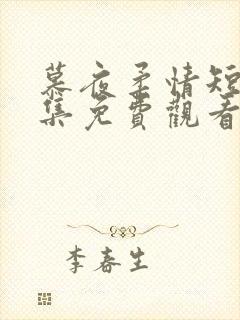 慕夜柔情短
集免費觀看
李春生